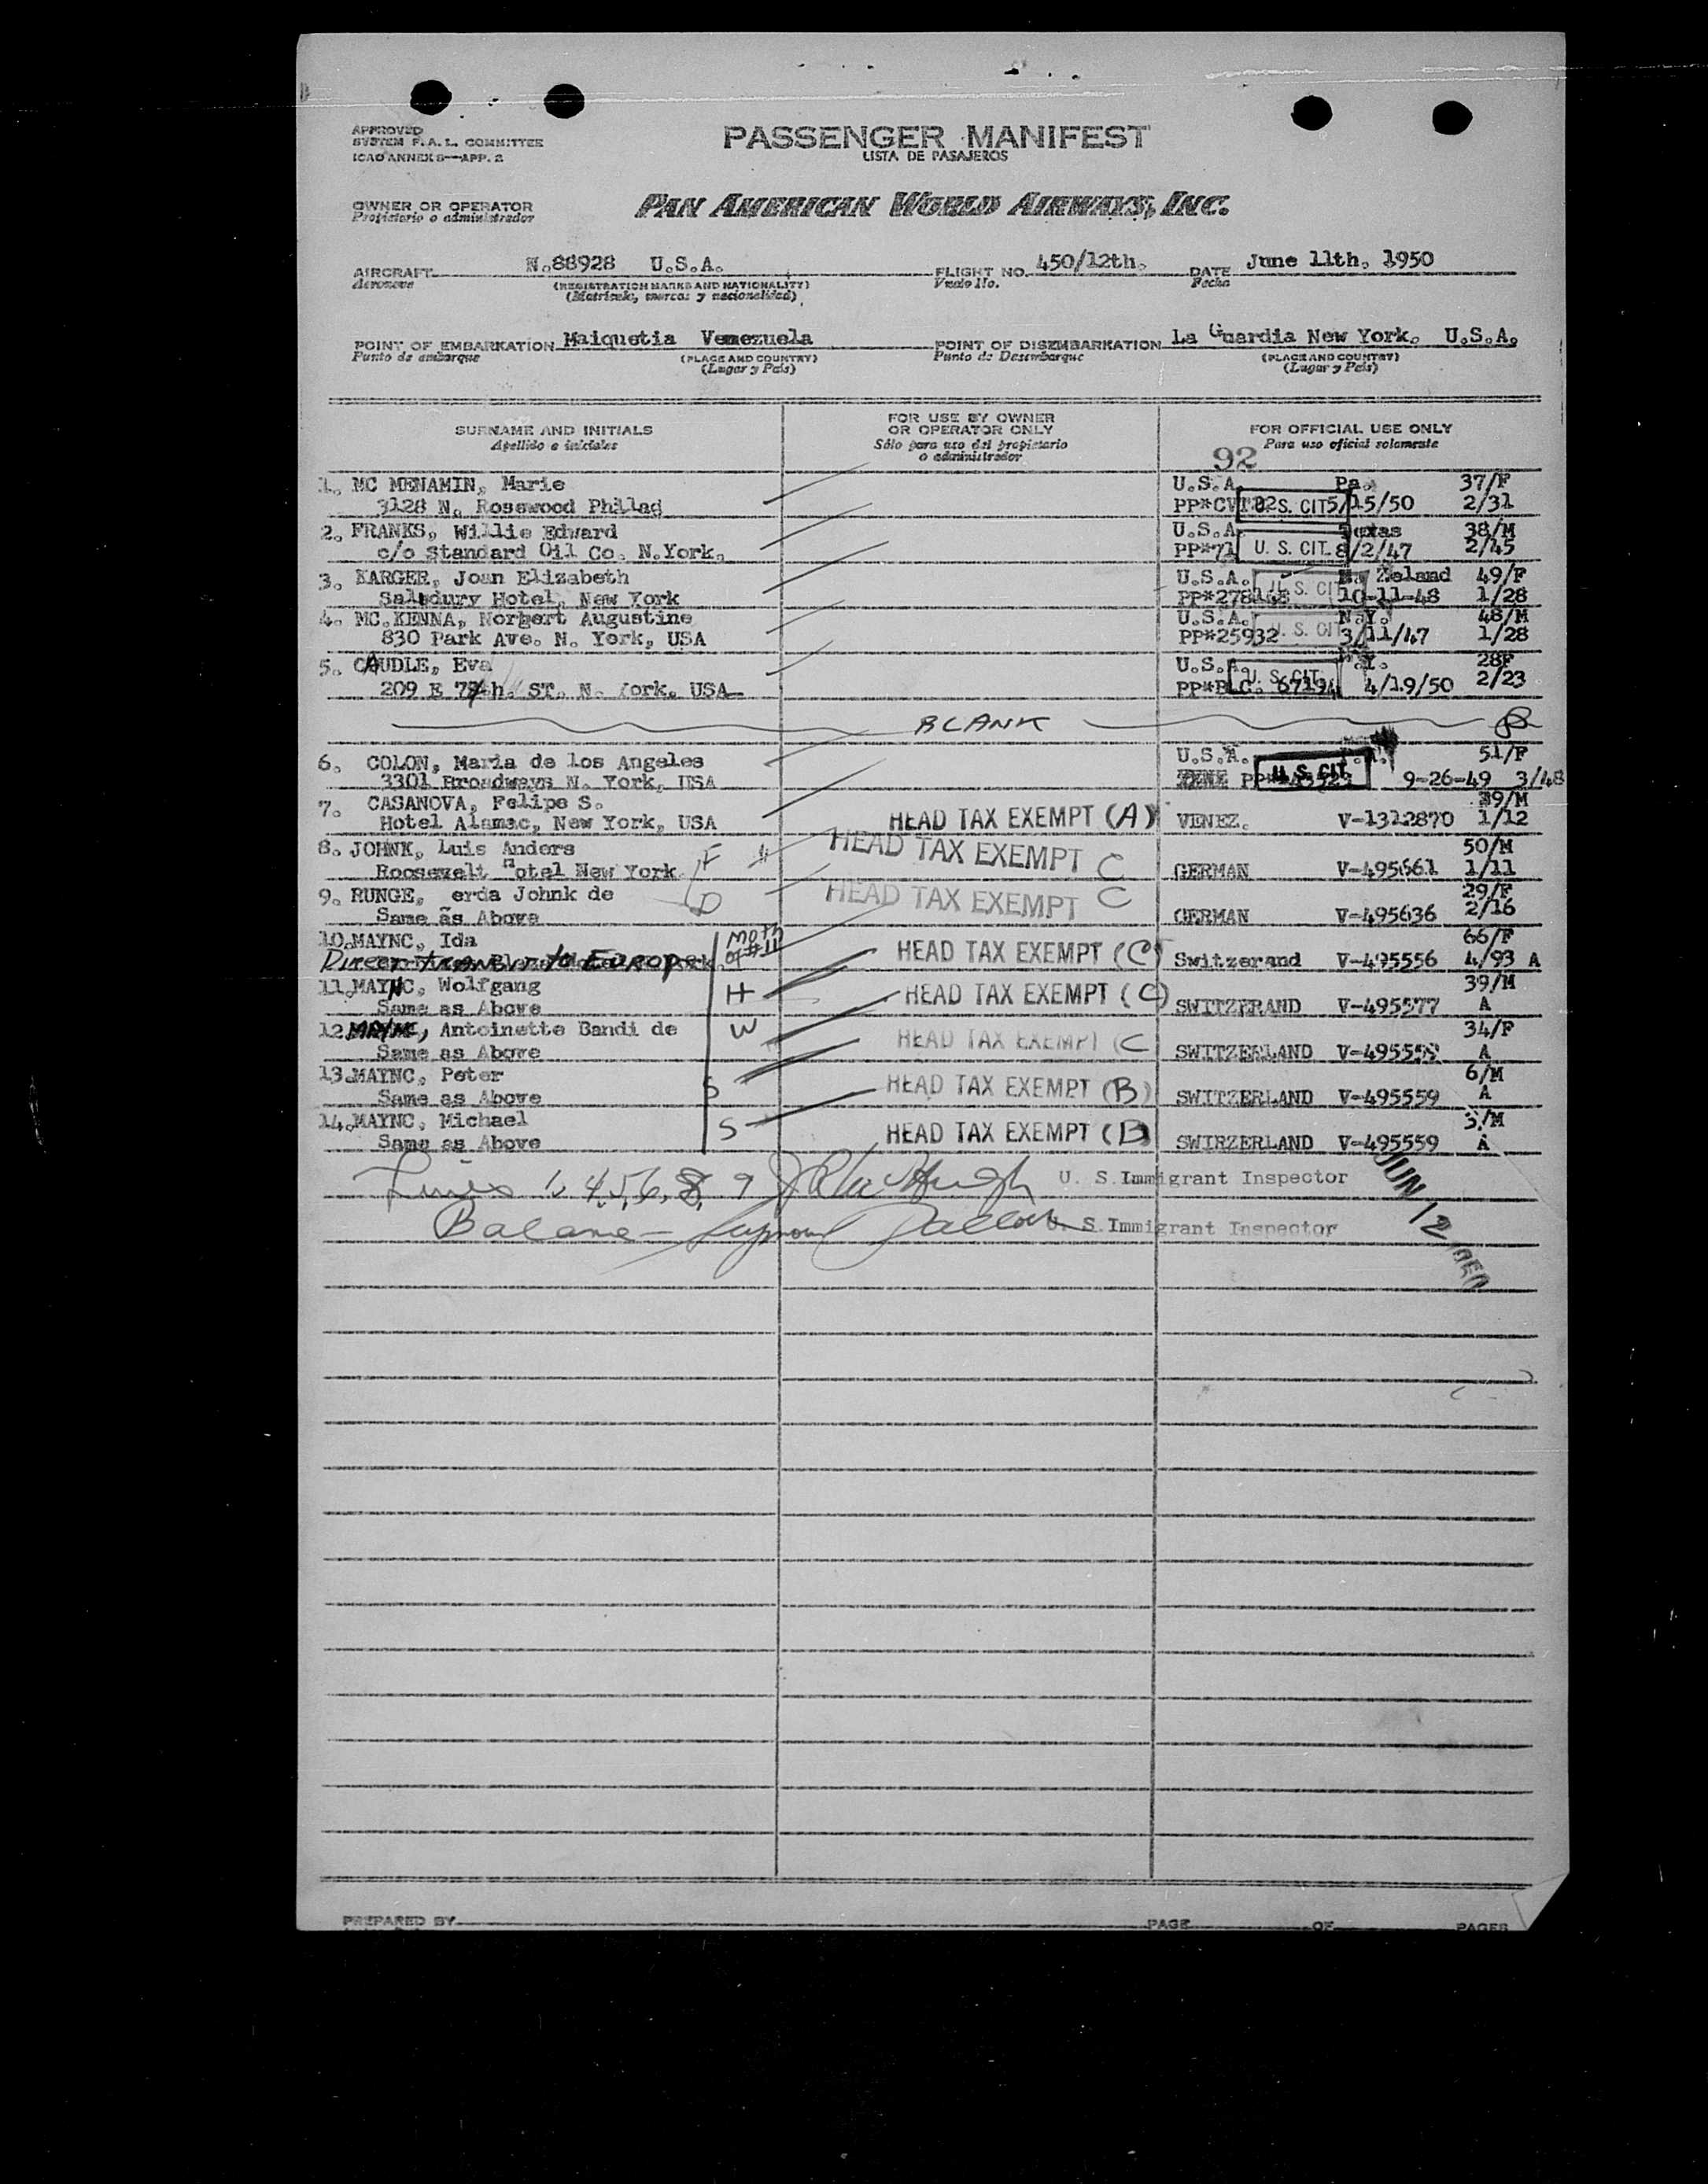 APPROVED
SYSTEM F.A.L. COMMITTEE
ICAO ANNEX 9—APP. 2
PASSENGER MANIFEST
LISTA DE PASAJEROS
OWNER OR OPERATOR
Propietario o administrador
PAN AMERICAN WORLD AIRWAYS, INC.
AIRCRAFT N.88928 U.S.A. FLIGHT NO. 450/12th. DATE June 11th, 1950
Aeronave (REGISTRATION MARKS AND NATIONALITY) Vuelo No. Fecha
(Matricula, marcas y nacionalidad)
POINT OF EMBARKATION Maiquetia Venezuela POINT OF DISEMBARKATION La Guardia New York, U.S.A.
Punto de embarque (PLACE AND COUNTRY) Punto de Desembarque (PLACE AND COUNTRY)
(Lugar y País) (Lugar y País)
SURNAME AND INITIALS FOR USE BY OWNER OR OPERATOR ONLY FOR OFFICIAL USE ONLY
Apellido e iniciales Sólo para uso del propietario o administrador Para uso oficial solamente
92
1. MC MENAMIN, Marie U.S.A. Pa. 37/F
3128 N. Rosewood Philad U. S. CIT 5/15/50 2/31
2. FRANKS, Willie Edward U.S.A. Texas 38/M
c/o Standard Oil Co. N.York, PP*71 U. S. CIT. 8/2/47 2/45
3. KARGER, Joan Elizabeth U.S.A. Zeland 49/F
Hotel, New York U. S. CIT 10-11-48 1/28
4. MC.KENNA, Norbert Augustine U.S.A. N.Y. 48/M
830 Park Ave. N. York, USA PP*25932 U. S. CIT 3/11/47 1/28
5. CAUDLE, Eva U.S.A. 28F
209 E ST. N. York. USA U. S. CIT 4/19/50 2/23
BLANK
6. COLON, Maria de los Angeles U.S.A. 51/F
3301 Broadways N. York, USA U. S. CIT. 9-26-49 3/48
7. CASANOVA, Felipe S. 39/M
Hotel Alamac, New York, USA HEAD TAX EXEMPT (A) VENEZ. V-1312870 1/12
8. JOHNK, Luis Anders F HEAD TAX EXEMPT C 50/M
Roosevelt Hotel New York GERMAN V-495661 1/11
9. RUNGE, erda Johnk de D HEAD TAX EXEMPT C 29/F
Same as Above GERMAN V-495636 2/16
10.MAYNC, Ida Moth of #11 66/F
Direct transit to Europe HEAD TAX EXEMPT (C) Switzerand V-495556 4/93 A
11.MAYNC, Wolfgang H 39/M
Same as Above HEAD TAX EXEMPT (C) SWITZERAND V-495577 A
12. Antoinette Bandi de W 34/F
Same as Above HEAD TAX EXEMPT (C SWITZERLAND A
13.MAYNC, Peter S 6/M
Same as Above HEAD TAX EXEMPT (B) SWITZERLAND V-495559 A
14.MAYNC, Michael S 3/M
Same as Above HEAD TAX EXEMPT (B) SWIRZERLAND V-495559 A
Lines 1, 4,5,6, 8, 9 U. S. Immigrant Inspector
Balance - Seymour U. S. Immigrant Inspector
JUN 12 1950
PREPARED BY PAGE OF PAGES